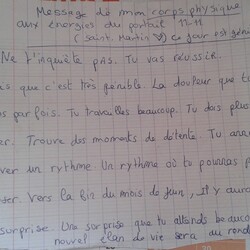 Message de mon corps physique
aux énergies du portail 12-11
(Saint Martin) Ce jour est géni
Ne t'inquiète pas. Tu vas réussir.
ais que c'est très pénible. La douleur que tu
s par fois. Tu travailles beaucoup. Tu dois plus
er. Trouve des moments de détente. Tu arri
ver un rythme. Un rythme où tu pourras p
ser. Vers la fin du mois de Juin, il y aura
surprise. Une surprise que tu attends beauco
nouvel élan de vie sera au rond